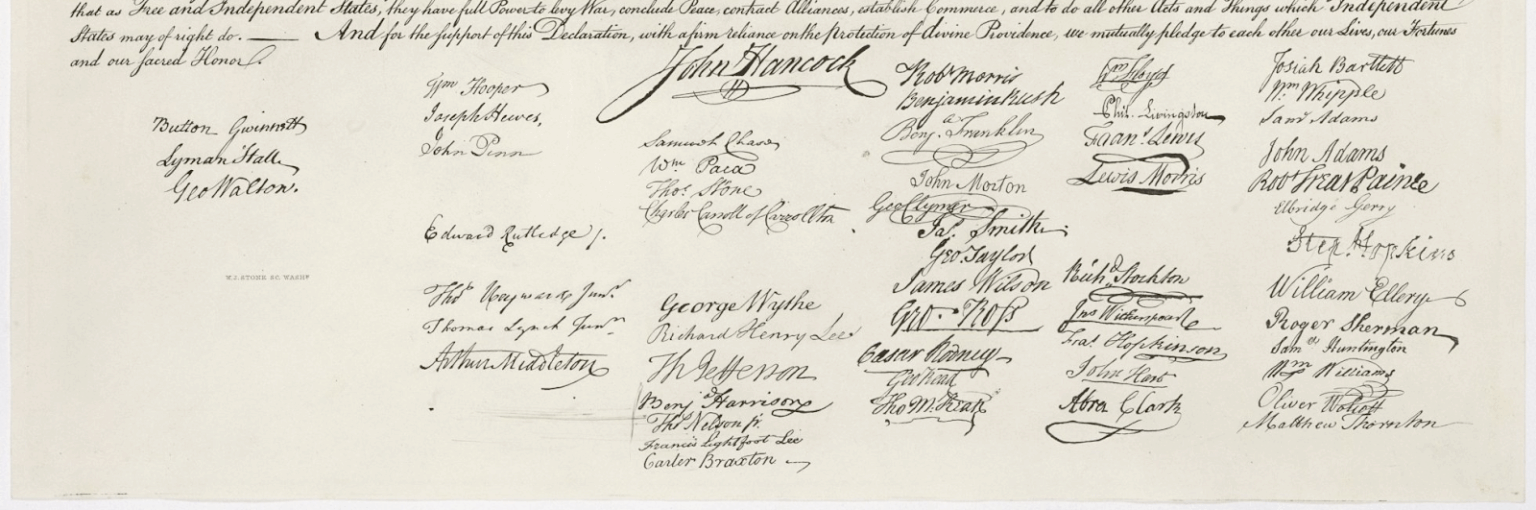 that as Free and Independent States, they have full Power to levy War, conclude Peace, contract Alliances, establish Commerce, and to do all other Acts and Things which Independent
States may of right do. — And for the support of this Declaration, with a firm reliance on the protection of divine Providence, we mutually pledge to each other our Lives, our Fortunes
and our sacred Honor.
Button Gwinnett
Lyman Hall
Geo Walton.
W. J. STONE SC. WASHN
Wm Hooper
Joseph Hewes,
John Penn
Edward Rutledge /.
Thos Heyward Junr.
Thomas Lynch Junr.
Arthur Middleton
John Hancock
Samuel Chase
Wm. Paca
Thos. Stone
Charles Carroll of Carrollton
George Wythe
Richard Henry Lee
Th Jefferson
Benj. Harrison
Thos Nelson jr.
Francis Lightfoot Lee
Carter Braxton
Robt Morris
Benjamin Rush
Benj. Franklin
John Morton
Geo Clymer
Jas. Smith
Geo. Taylor
James Wilson
Geo. Ross
Caesar Rodney
Geo Read
Tho M:Kean
Wm Floyd
Phil. Livingston
Frans. Lewis
Lewis Morris
Richd. Stockton
Jno Witherspoon
Fras. Hopkinson
John Hart
Abra Clark
Josiah Bartlett
Wm. Whipple
Saml Adams
John Adams
Robt Treat Paine
Elbridge Gerry
Step. Hopkins
William Ellery
Roger Sherman
Samel Huntington
Wm Williams
Oliver Wolcott
Matthew Thornton